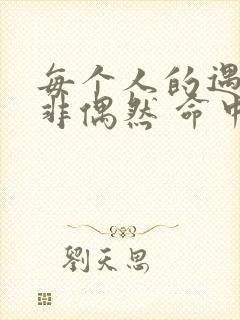 每个人的遇
非偶然 命中
劉天思